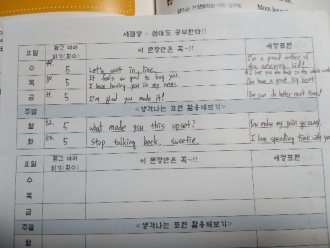 세젤맘 - 엄마도 공부한다!!
요일 듣고 따라 읽기(횟수) 이 문장만은 꼭~!! 애정표현
수 5 Let's wait in line. I'm a proud mother of
목 5 It feels so good to hug you. I love you
I love having you in my arms. I have a great
금 5 I'm glad you made it! You can do better next time!
주말 <생각나는 표현 활용해보기>
월 5 what made you this upset? You make my
화 5 Stop talking back, sweetie. I love spending time with you
요일 듣고 따라 읽기(횟수) 이 문장만은 꼭~!! 애정표현
수
목
금
주말 <생각나는 표현 활용해보기>
월